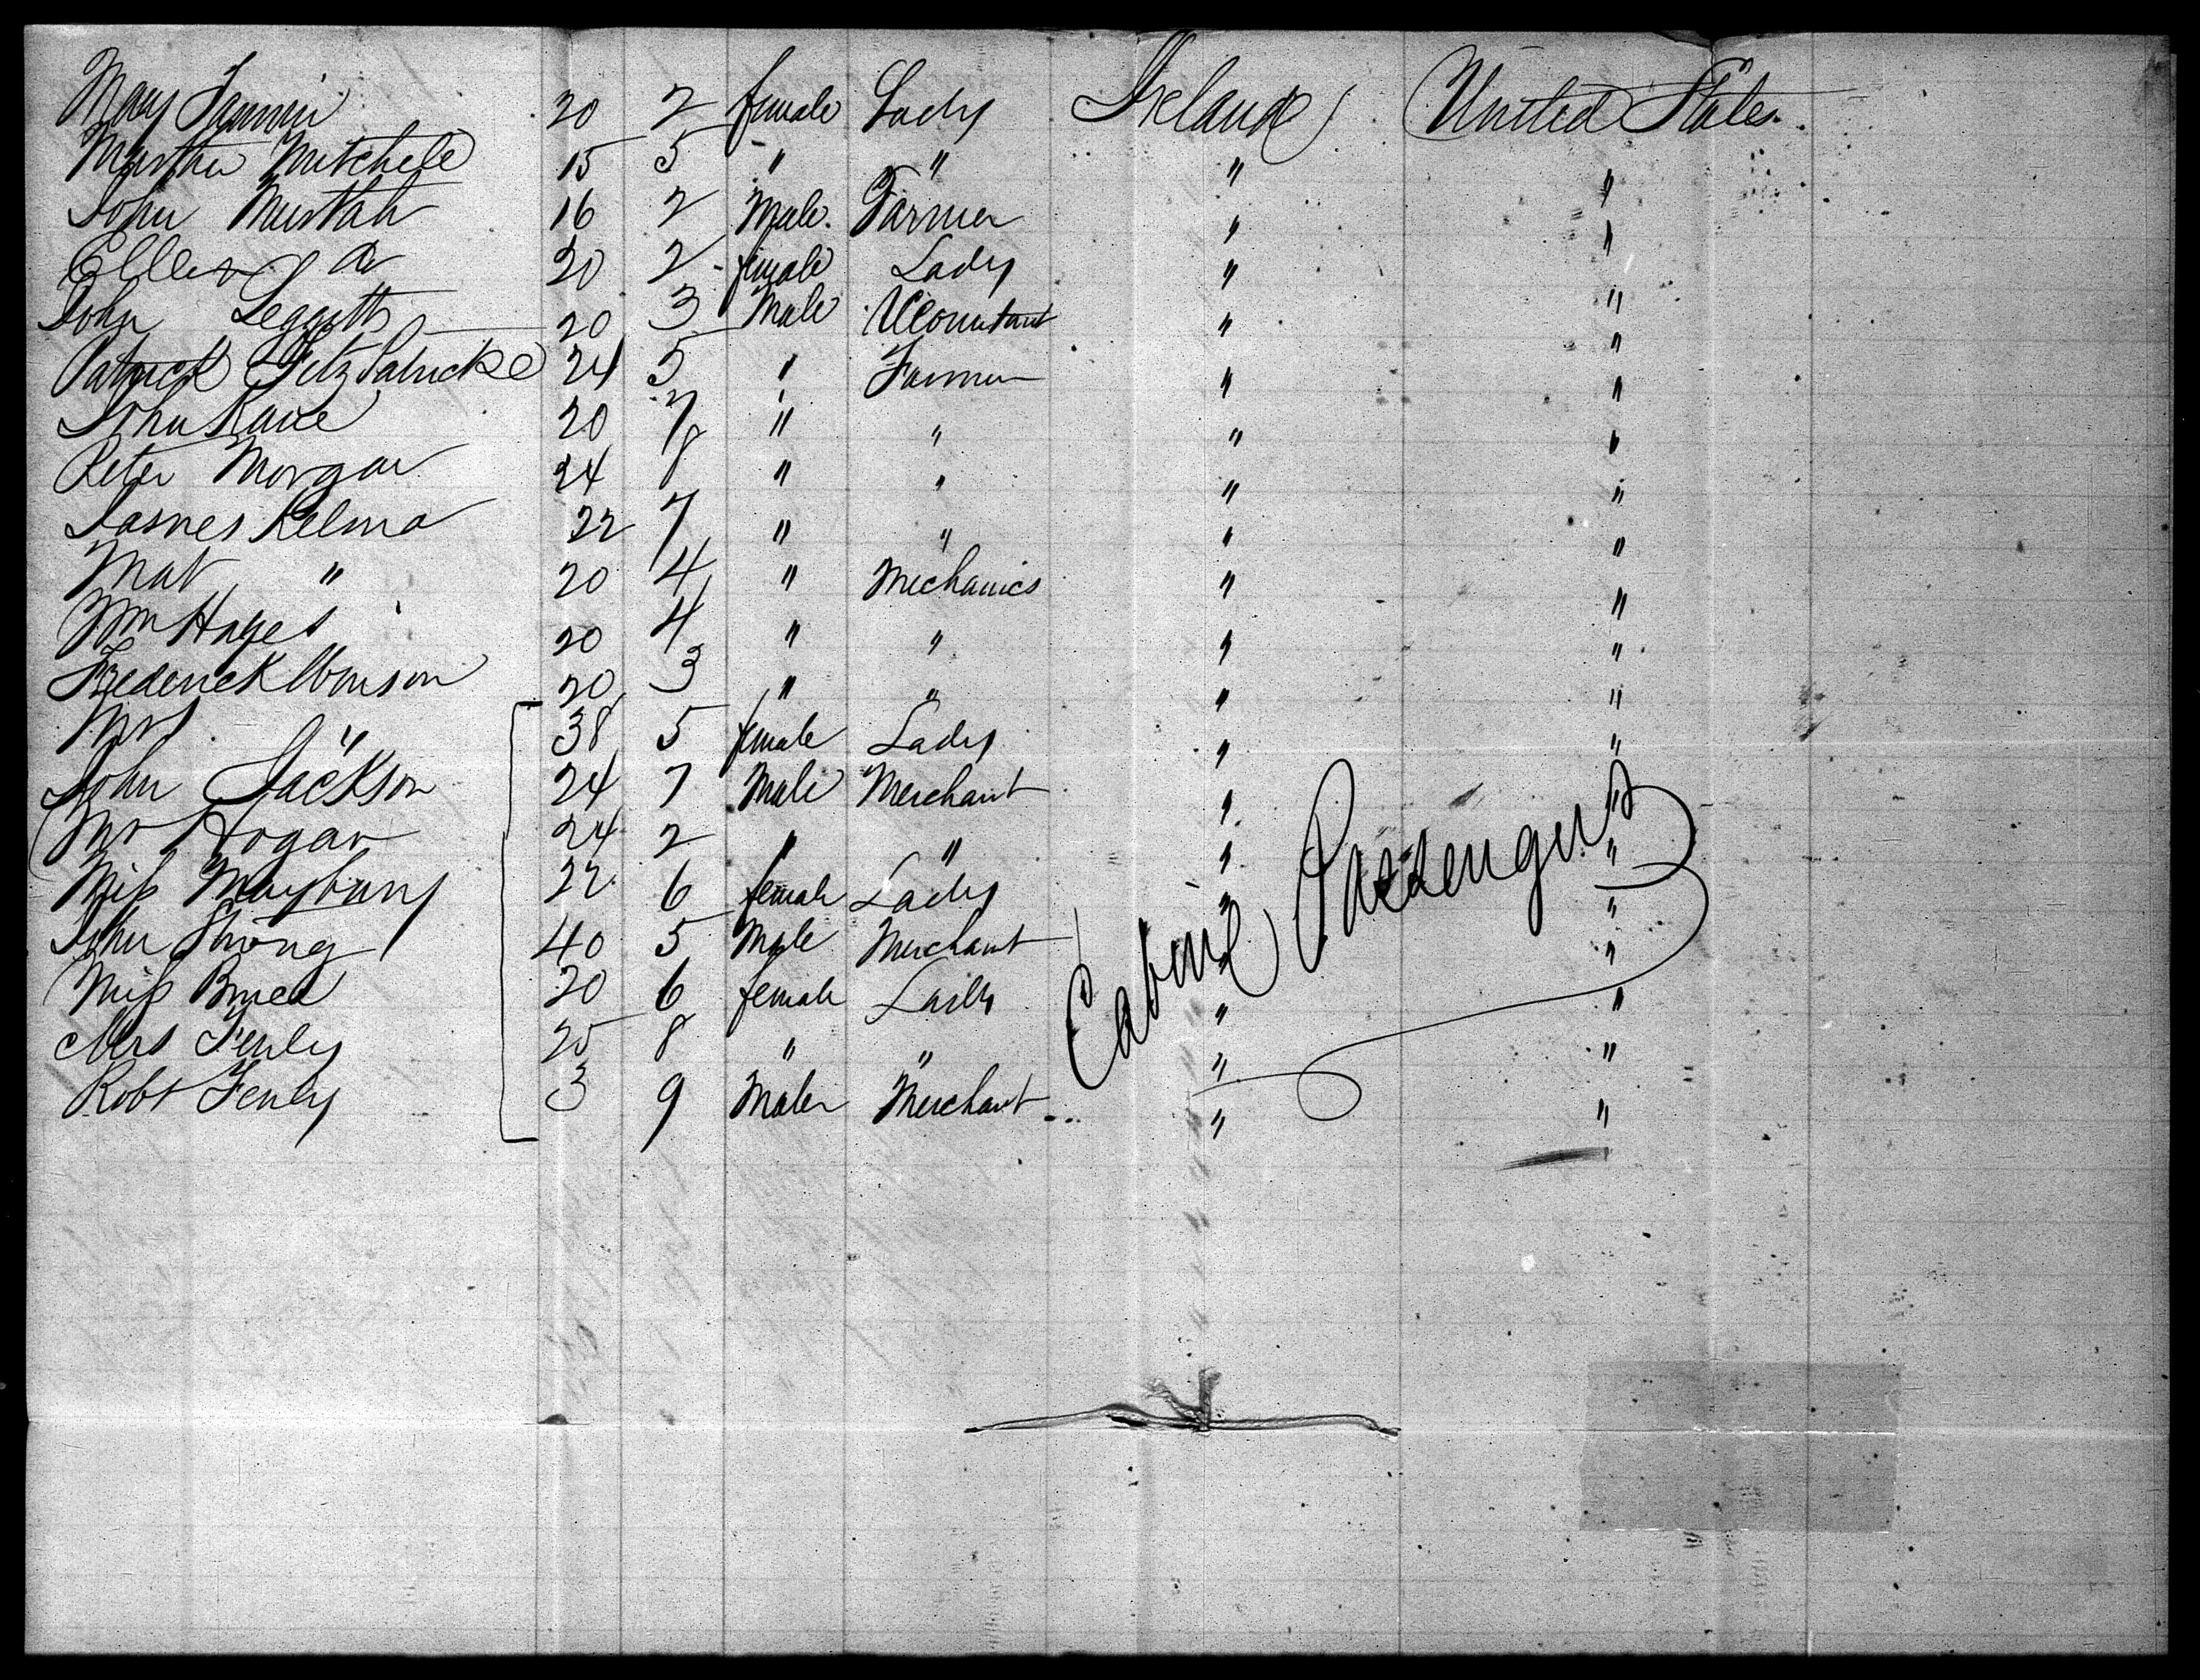 Mary Fannin 20 2 female Lady Ireland United States.
Martha Mitchell 15 5 " " " "
John Murtah 16 2 Male. Farmer " "
Ellen a 20 2 female Lady " "
John Leggitt 20 3 Male Acountant " "
Patrick Fitz Patricke 24 5 " Farmer " "
John Kane 20 7 " " " "
Peter Morgan 24 8 " " " "
James Kelma 22 7 " " " "
Mat " 20 4 " Mechanics " "
Wm Hayes 20 4 " " " "
Frederick 20 3 " " " "
Mrs " 38 5 female Lady " "
John Jackson 24 7 Male Merchant " "
Mr Hogan 24 2 " " " "
Miss Maybury 22 6 female Lady " "
John Strong 40 5 Male Merchant " "
Miss 20 6 female Lady " "
Mrs Fenly 25 8 " " " "
Robt Fenly 3 9 Male Merchant " "
Cabine Passengers